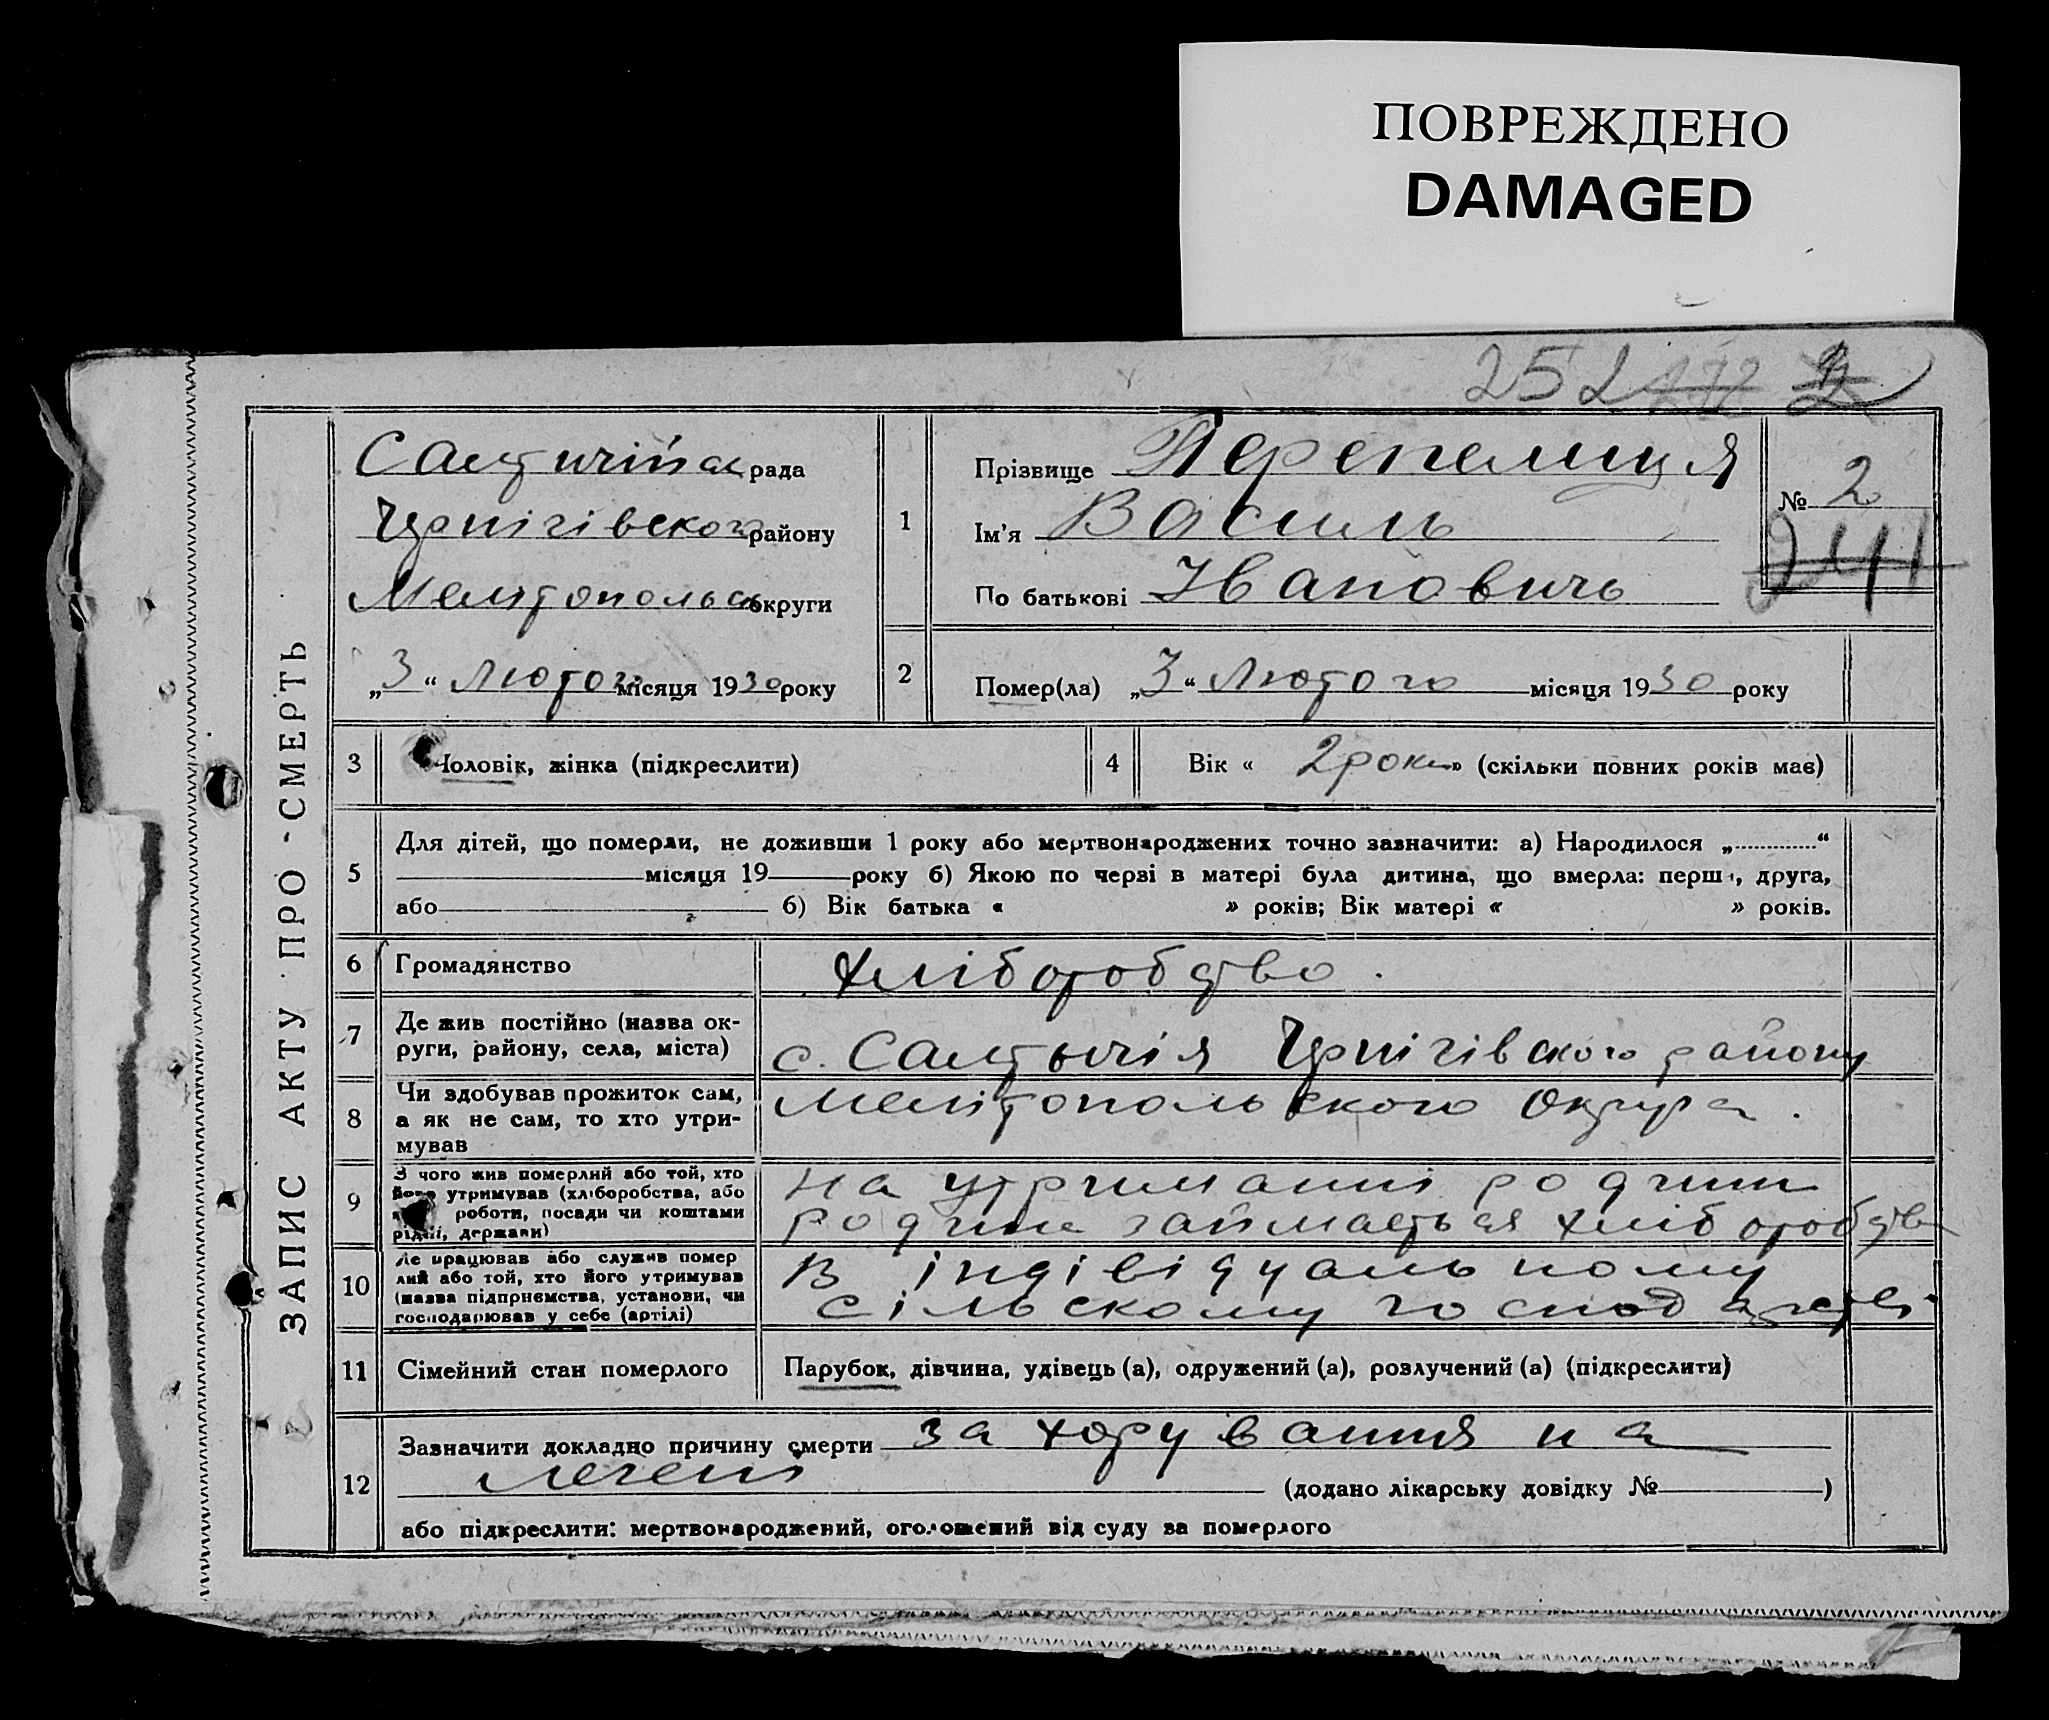 ПОВРЕЖДЕНО
DAMAGED
252
ЗАПИС АКТУ ПРО СМЕРТЬ
Салтичійск рада
Чернігівского району
Мелітопольськ округи
„3“ Лютого місяця 1930 року
1
Прізвище Перепелиця
Ім'я Василь
По батькові Ивановичь
№ 2
241
2
Помер(ла) „3“ Лютого місяця 1930 року
3
Чоловік, жінка (підкреслити)
4
Вік « 2 роки » (скільки повних років має)
5
Для дітей, що померли, не доживши 1 року або мертвонароджених точно зазначити: а) Народилося „ “
місяця 19 року б) Якою по черзі в матері була дитина, що вмерла: перша, друга,
або б) Вік батька « » років; Вік матері « » років.
6
Громадянство
хліборобство.
7
Де жив постійно (назва ок-
руги, району, села, міста)
с. Салтычія Чернігівского району
8
Чи здобував прожиток сам,
а як не сам, то хто утри-
мував
Мелітопольского Округа.
9
З чого жив померлий або той, хто
його утримував (хліборобства, або
роботи, посади чи коштами
рідні, держави)
на утриманні родини
родина займається хліборобство
10
Де працював або служив помер
лий або той, хто його утримував
(назва підприємства, установи, чи
господарював у себе (артілі)
В індівідуальному
сільскому господарстві
11
Сімейний стан померлого
Парубок, дівчина, удівець (а), одружений (а), розлучений (а) (підкреслити)
12
Зазначити докладно причину смерти захорування на
легені (додано лікарську довідку № )
або підкреслити: мертвонароджений, оголошений від суду за померлого